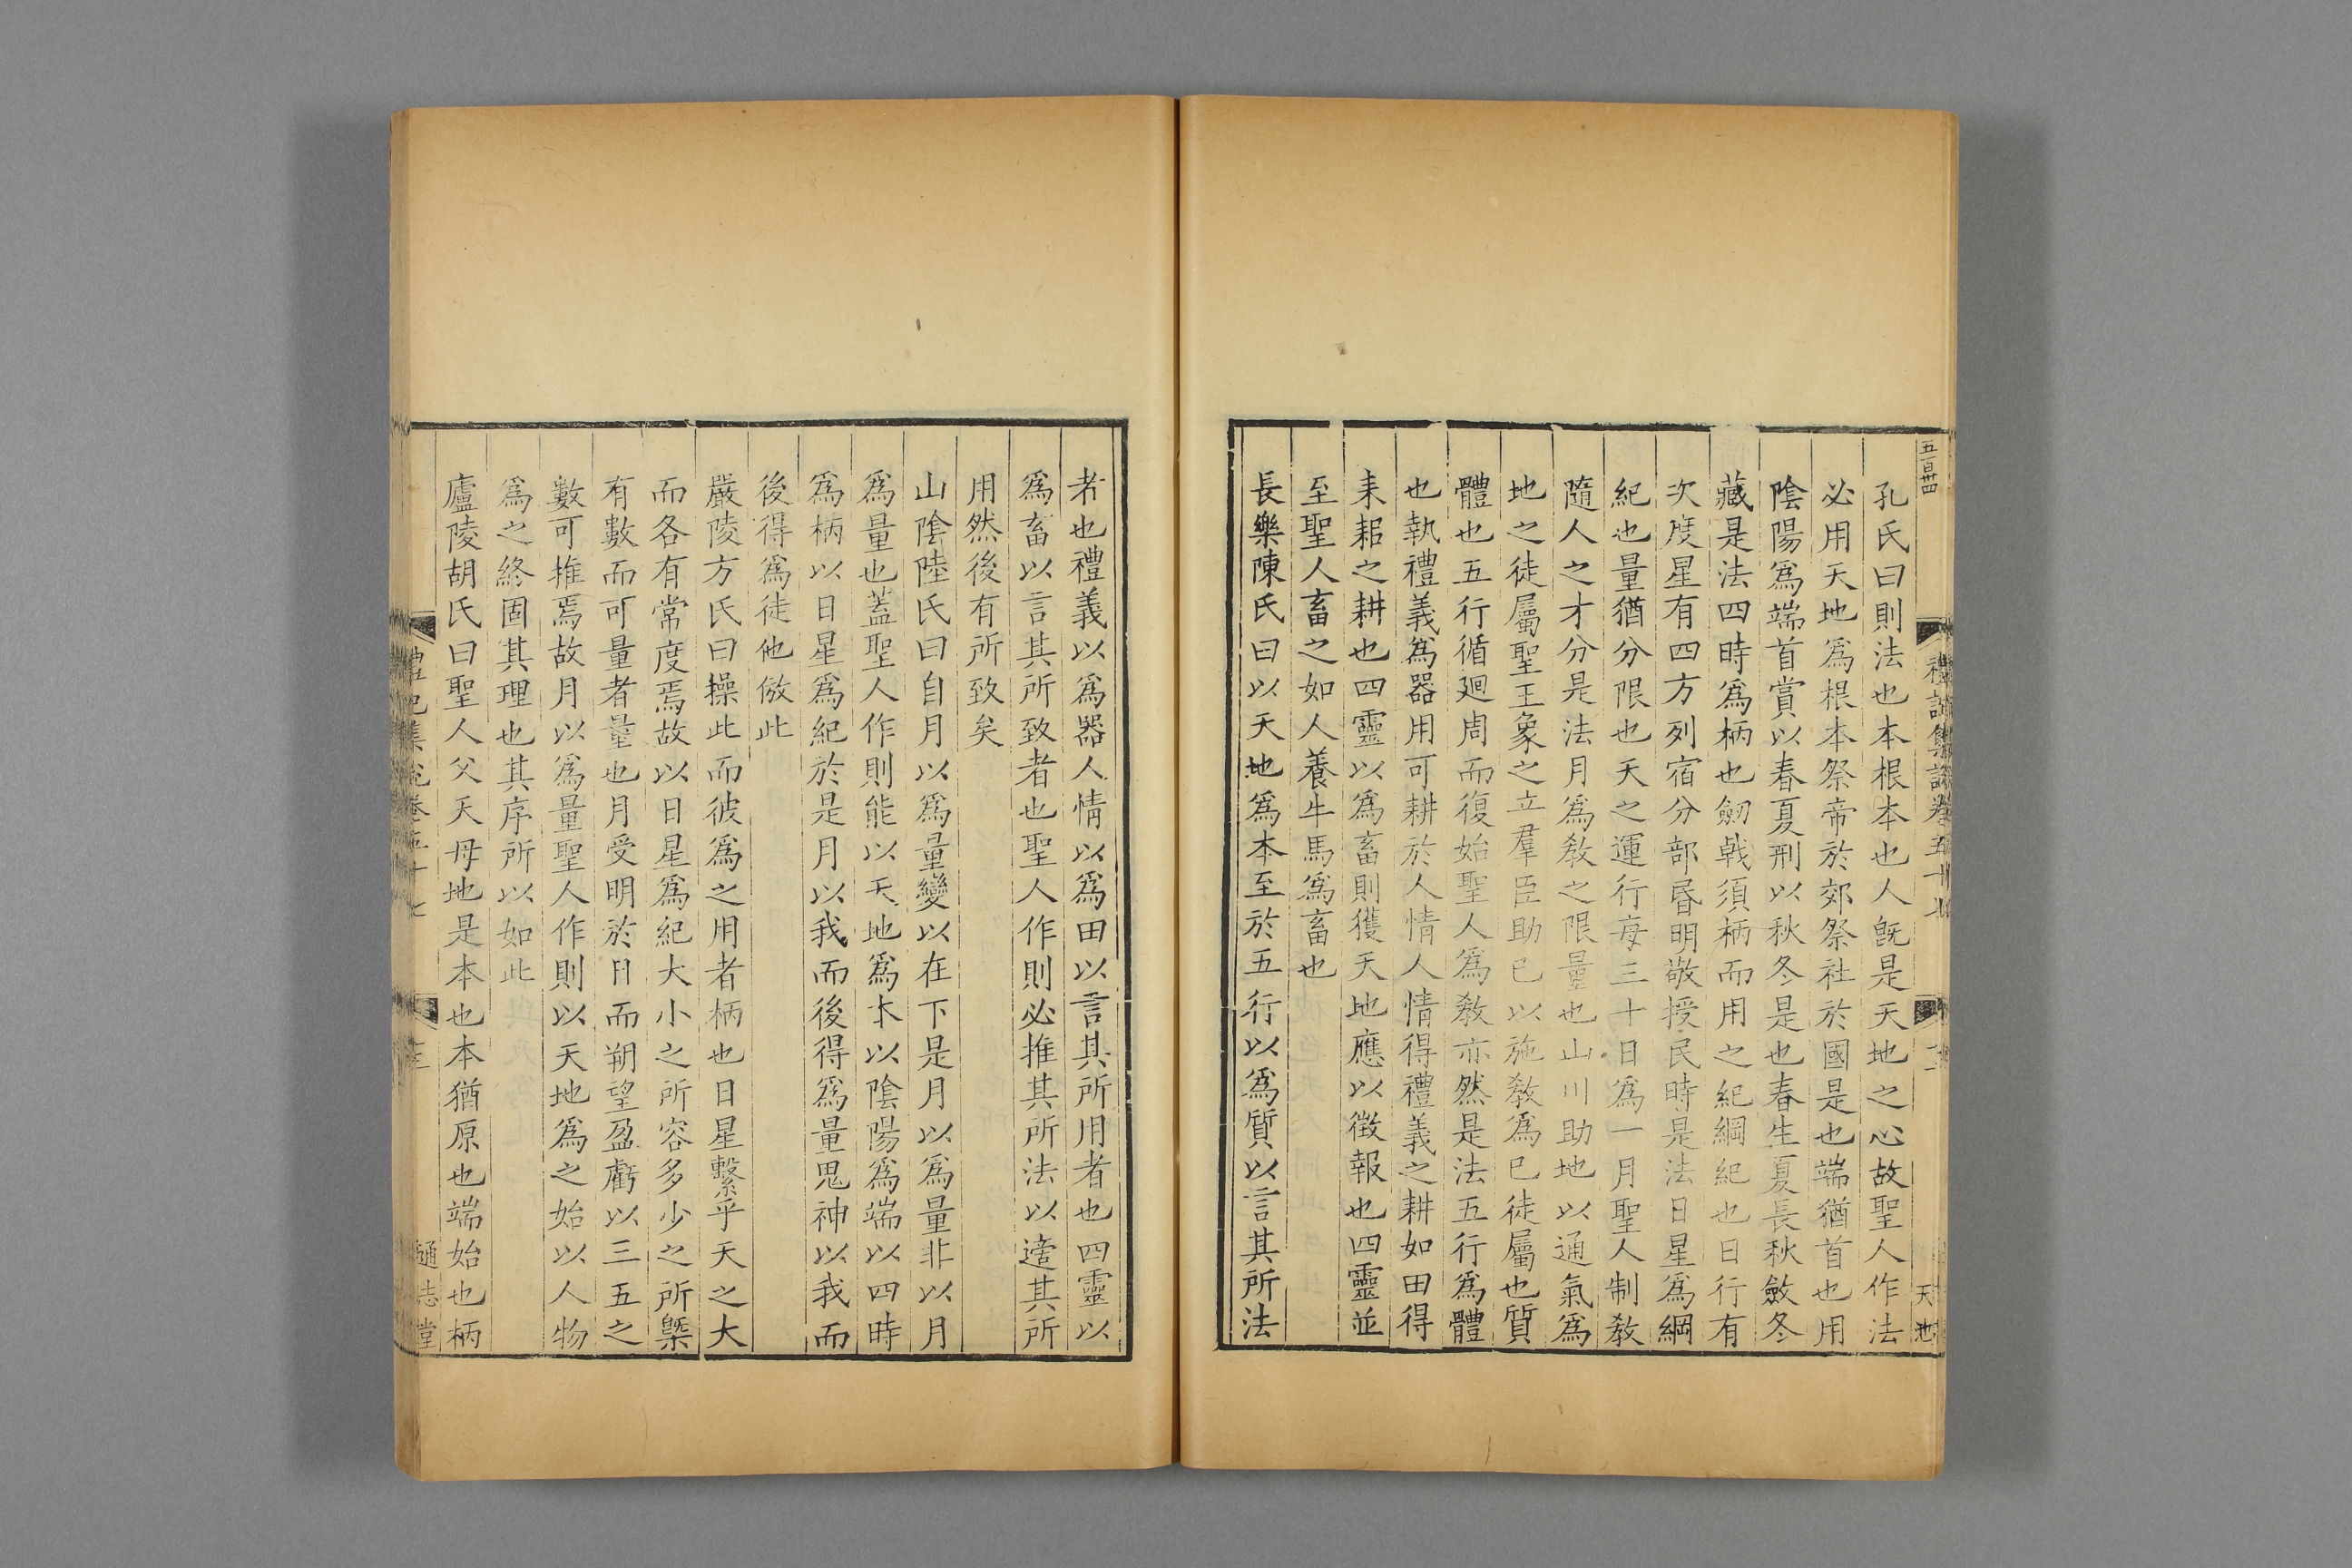 五百卌四
禮記集說卷五十七
二
天池
孔氏曰則法也本根本也人既是天地之心故聖人作法
必用天地爲根本祭帝於郊祭社於國是也端猶首也用
陰陽爲端首賞以春夏刑以秋冬是也春生夏長秋斂冬
藏是法四時爲柄也劒戟須柄而用之紀綱紀也日行有
次度星有四方列宿分部昬明敬授民時是法日星爲綱
紀也量猶分限也天之運行每三十日爲一月聖人制敎
隨人之才分是法月爲敎之限量也山川助地以通氣爲
地之徒屬聖王象之立羣臣助已以施敎爲已徒屬也質
體也五行循廻周而復始聖人爲敎亦然是法五行爲體
也執禮義爲器用可耕於人情人情得禮義之耕如田得
耒耜之耕也四靈以爲畜則獲天地應以徵報也四靈並
至聖人畜之如人養牛馬爲畜也
長樂陳氏曰以天地爲本至於五行以爲質以言其所法
者也禮義以爲器人情以爲田以言其所用者也四靈以
爲畜以言其所致者也聖人作則必推其所法以逵其所
用然後有所致矣
山陰陸氏曰自月以爲量變以在下是月以爲量非以月
爲量也蓋聖人作則能以天地爲本以陰陽爲端以四時
爲柄以日星爲紀於是月以我而後得爲量鬼神以我而
後得爲徒他倣此
嚴陵方氏曰操此而彼爲之用者柄也日星繫乎天之大
而各有常度焉故以日星爲紀大小之所容多少之所槩
有數而可量者量也月受明於日而朔望盈虧以三五之
數可推焉故月以爲量聖人作則以天地爲之始以人物
爲之終固其理也其序所以如此
廬陵胡氏曰聖人父天母地是本也本猶原也端始也柄
禮記集說卷五十七
三
通志堂